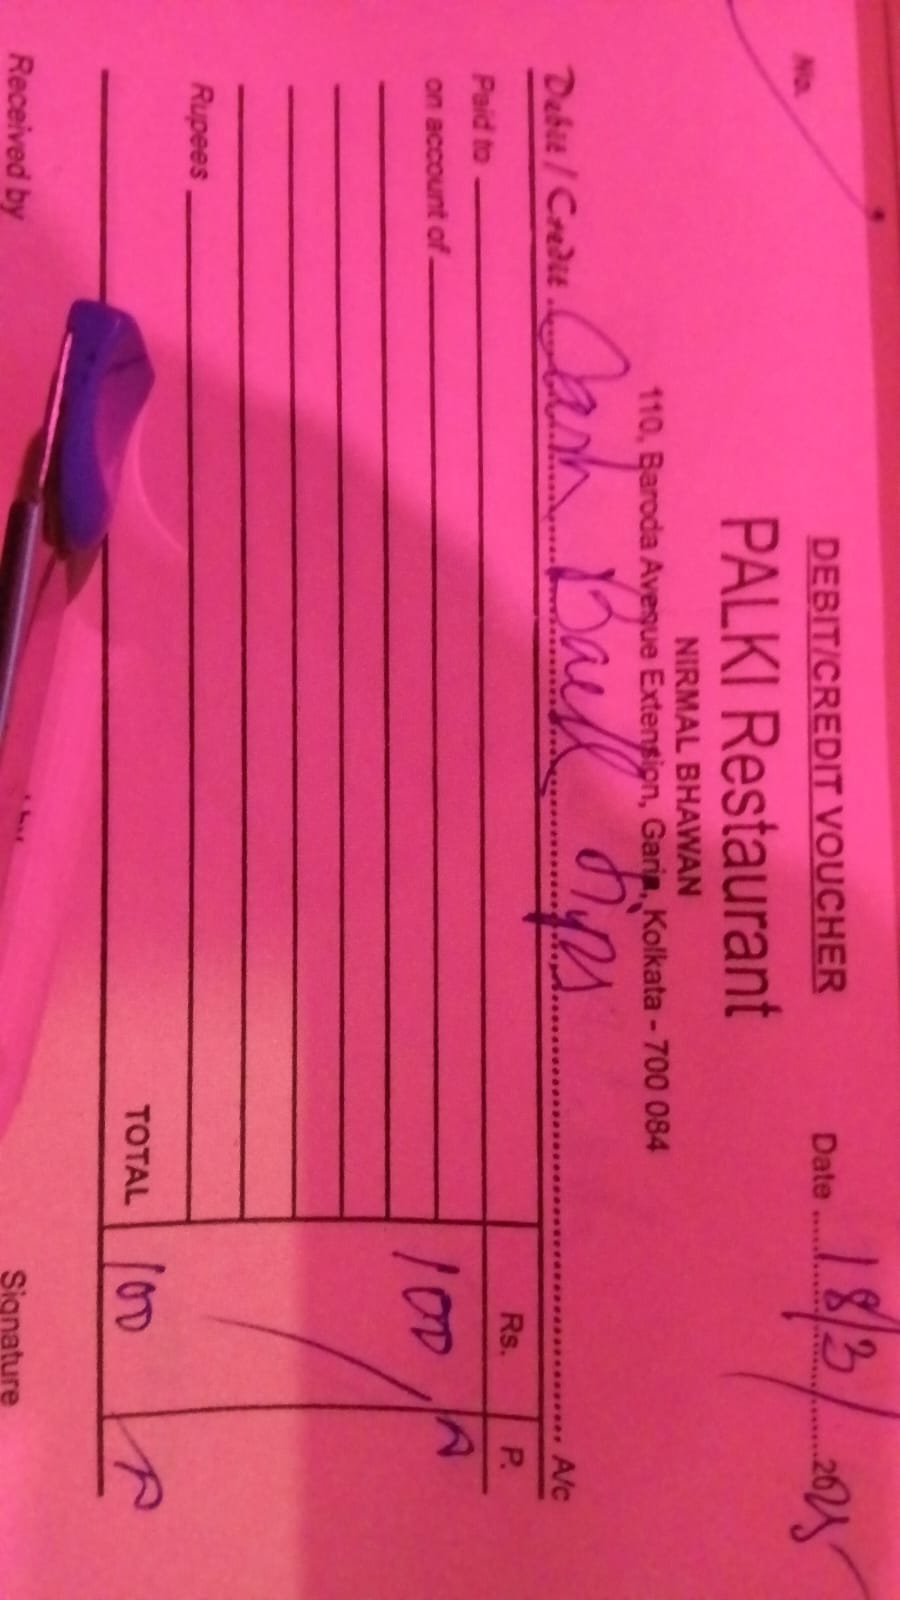 DEBIT/CREDIT VOUCHER
No. Date 18/3/2025
PALKI Restaurant
NIRMAL BHAWAN
110, Baroda Avenue Extension, Garia, Kolkata - 700 084
Debit / Credit Cash Back A/c
Rs. P.
Paid to
on account of 100
Rupees
TOTAL 100
Received by Signature